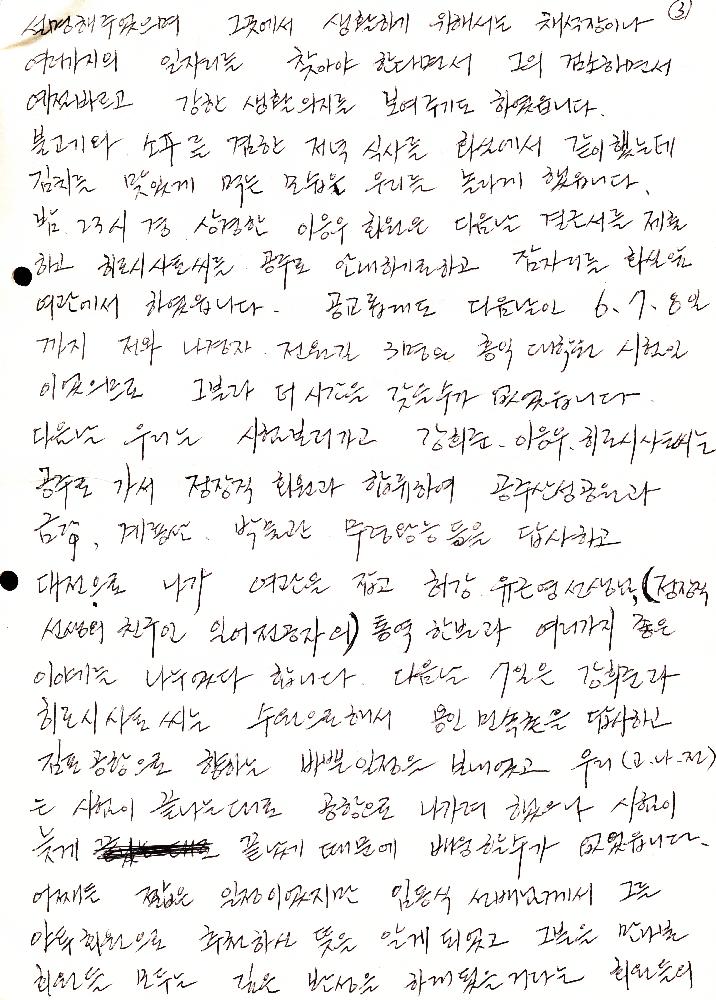 ③
설명해주었으며 그곳에서 생활하기 위해서는 채석장이나
여러가지의 일자리를 찾아야 한다면서 그의 검소하면서
예절바르고 강한 생활의지를 보여주기도 하였습니다.
불고기와 소주를 겸한 저녁 식사를 화실에서 같이했는데
김치를 맛있게 먹는 모습은 우리를 놀라게 했읍니다.
밤 23시 경 상경한 이응우 회원은 다음날 결근서를 제출
하고 히로시사또씨를 공주로 안내하기로하고 잠자리를 화실앞
여관에서 하였읍니다. 공교롭게도 다음날인 6.7.8일
까지 저와 나경자 전원길 3명의 홍익 대학원 시험일
이었의므로 그분과 더 시간을 갖을수가 없었읍니다.
다음날 우리는 시험보러가고 강희준.이응우.히로시사또씨는
공주로 가서 정장직 회원과 합류하여 공주산성공원과
금강, 계룡산. 박물관 무령왕능 등을 답사하고
대전으로 나가 여관을 잡고 허강 유근영선생님, (정장직
선생의 친구인 일어전공자의) 통역 한분과 여러가지 좋은
이야기를 나누었다 합니다. 다음날 7일은 강희준과
히로시사또 씨는 수원으로해서 용인 민속촌을 답사하고
김포공항으로 향하는 바쁜일정을 보내었고 우리(고.나.전)
는 시험이 끝나는대로 공항으로 나가려 했으나 시험이
늦게 끝났기 때문에 배웅할수가 없었읍니다.
어째든 짧은 일정이었지만 임동식 선배님께서 그를
야투회원으로 추천하신 뜻을 알게되었고 그분을 만나본
회원들 모두는 깊은 반성을 하게됬을거라는 회원들의